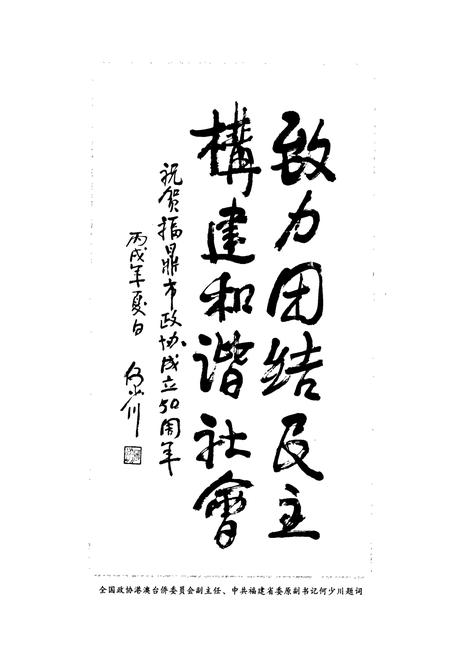 致力团结民主
構建和谐社會
祝贺福鼎市政协成立50周年
丙戌年夏日 何少川
全国政协港澳台侨委员会副主任、中共福建省委原副书记何少川题词